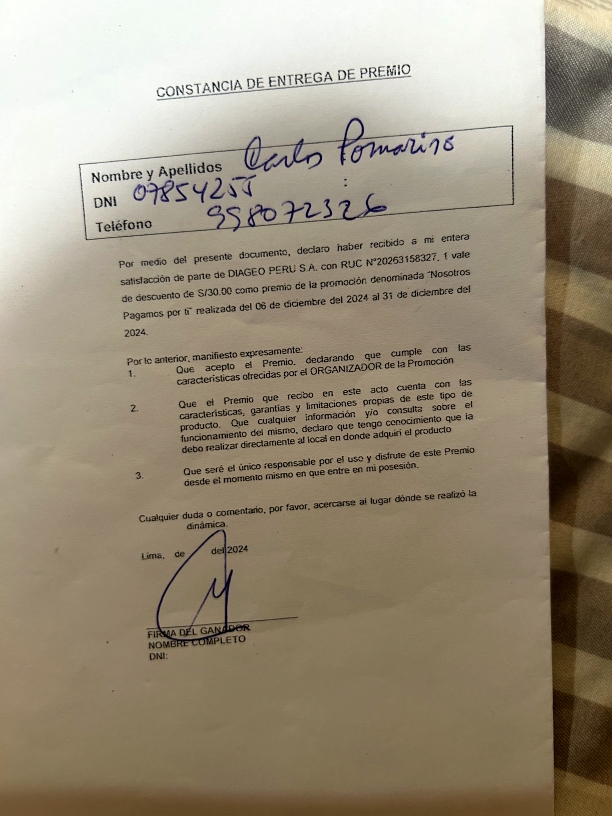 CONSTANCIA DE ENTREGA DE PREMIO
Nombre y Apellidos Carlos Pomarino
:
DNI 07854255
Teléfono 998072326
Por medio del presente documento, declaro haber recibido a mi entera
satisfacción de parte de DIAGEO PERU S.A. con RUC N°20263158327, 1 vale
de descuento de S/30.00 como premio de la promoción denominada “Nosotros
Pagamos por ti” realizada del 06 de diciembre del 2024 al 31 de diciembre del
2024.
Por lo anterior, manifiesto expresamente:
1. Que acepto el Premio, declarando que cumple con las
características ofrecidas por el ORGANIZADOR de la Promoción
2. Que el Premio que recibo en este acto cuenta con las
características, garantías y limitaciones propias de este tipo de
producto. Que cualquier información y/o consulta sobre el
funcionamiento del mismo, declaro que tengo conocimiento que la
debo realizar directamente al local en donde adquirí el producto
3. Que seré el único responsable por el uso y disfrute de este Premio
desde el momento mismo en que entre en mi posesión.
Cualquier duda o comentario, por favor, acercarse al lugar dónde se realizó la
dinámica.
Lima, de del 2024
FIRMA DEL GANADOR
NOMBRE COMPLETO
DNI: